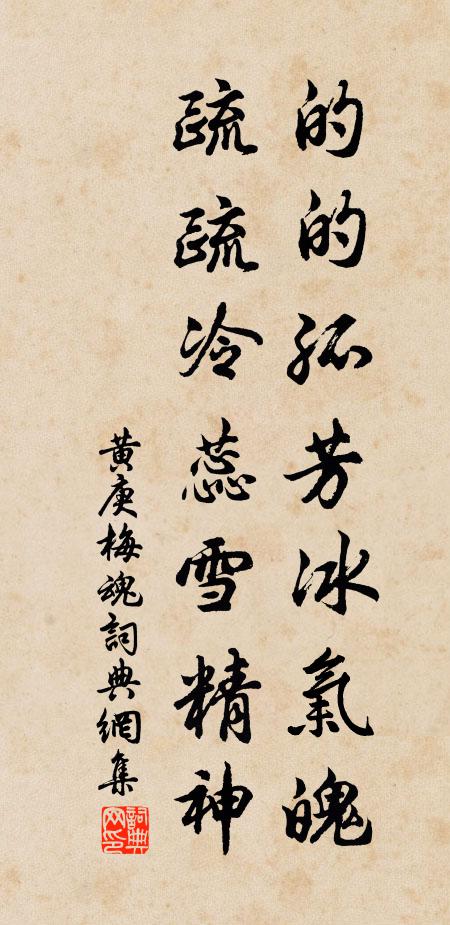 的的孤芳冰氣魄
疏疏冷蕊雪精神
黄庚梅魂詞典網集
詞典网印